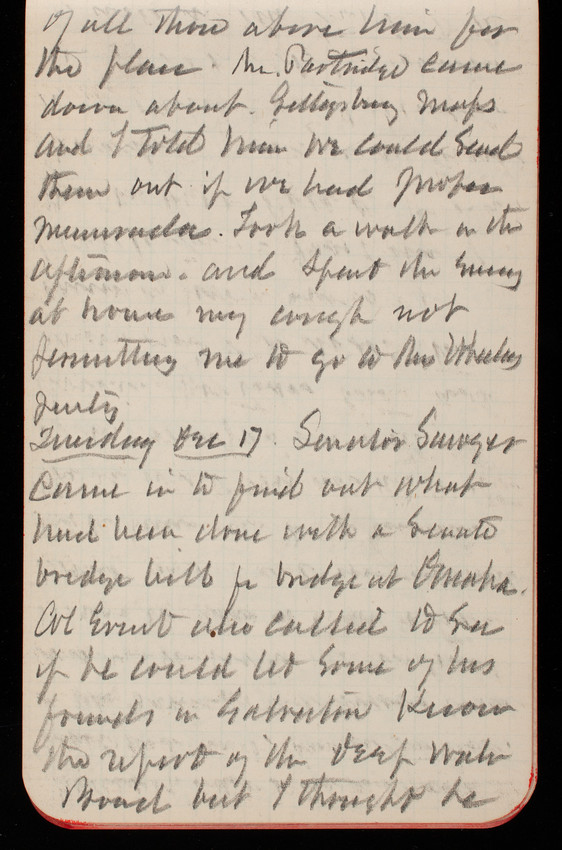 of all those above him for
the place. Mr. Partridge came
down about Gettysburg maps
and I told him we could send
them out if we had proper
memoranda. Took a walk in the
afternoon. and spent the evening
at home my cough not
permitting me to go to Mrs Wheelers
party
Tuesday Dec 17 Senator Sawyer
came in to find out what
had been done with a Senate
bridge bill for bridge at Omaha.
Col Ernst also called to see
if he could let some of his
friends in Galveston know
the report of the deep water
Board but I thought he